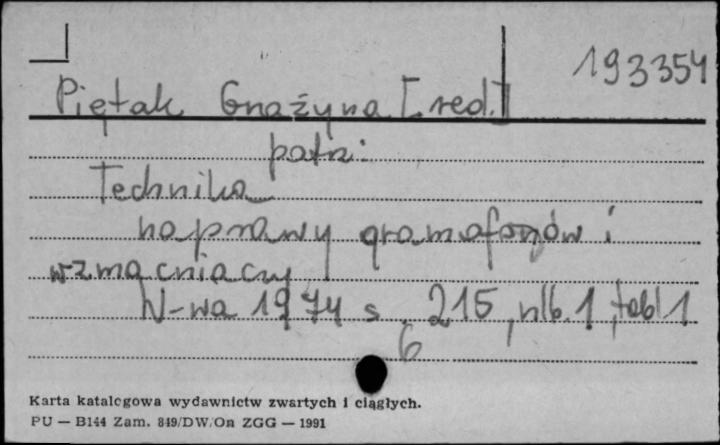 193354
Piętak Grażyna [red.]
patrz:
Technika
naprawy gramofonów i
wzmacniaczy
W-wa 1974 s. 215, nlb. 1, tabl 1
6
Karta katalogowa wydawnictw zwartych i ciągłych.
PU — B144 Zam. 849/DW/On ZGG — 1991